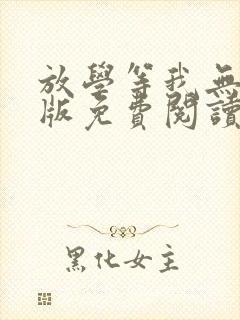 放學等我無
版免費閱讀
黑化女主